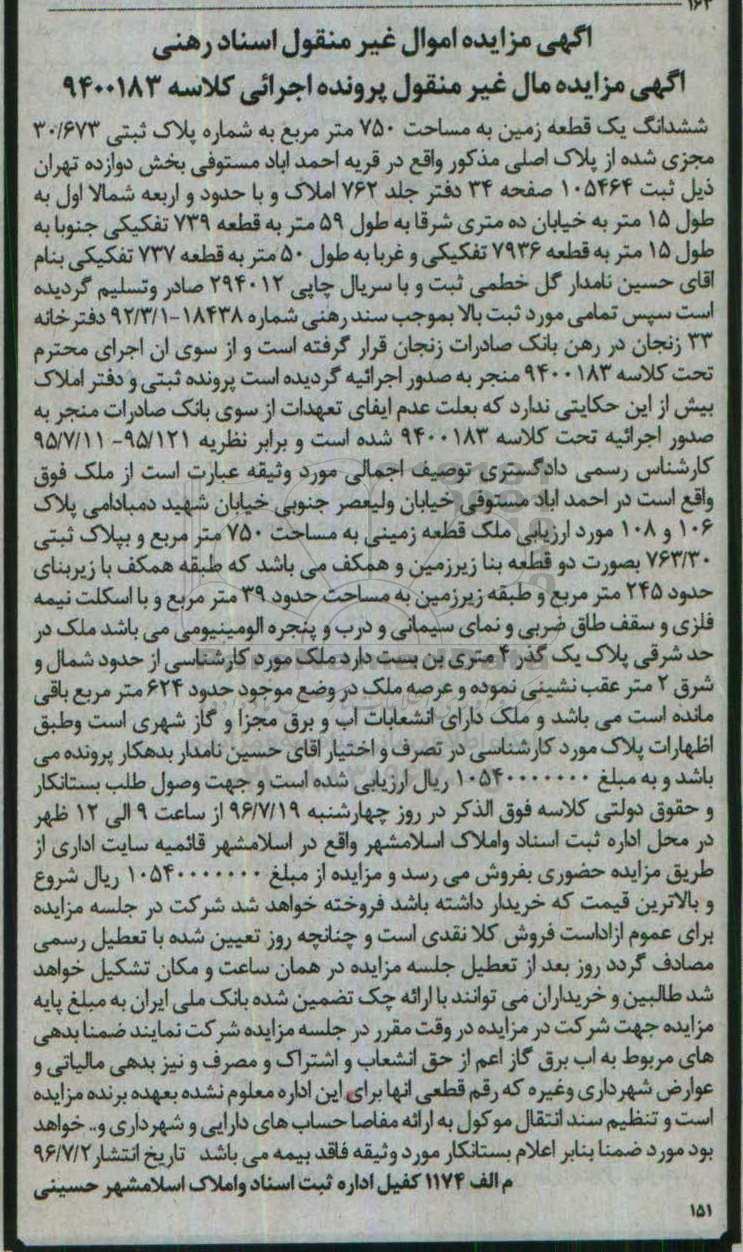 ۱۶۳
اگهی مزایده اموال غیر منقول اسناد رهنی
اگهی مزایده مال غیر منقول پرونده اجرائی کلاسه ۹۴۰۰۱۸۳
ششدانگ یک قطعه زمین به مساحت ۷۵۰ متر مربع به شماره پلاک ثبتی ۳۰/۶۷۳
مجزی شده از پلاک اصلی مذکور واقع در قریه احمد اباد مستوفی بخش دوازده تهران
ذیل ثبت ۱۰۵۴۶۴ صفحه ۳۴ دفتر جلد ۷۶۲ املاک و با حدود و اربعه شمالا اول به
طول ۱۵ متر به خیابان ده متری شرقا به طول ۵۹ متر به قطعه ۷۳۹ تفکیکی جنوبا به
طول ۱۵ متر به قطعه ۷۹۳۶ تفکیکی و غربا به طول ۵۰ متر به قطعه ۷۳۷ تفکیکی بنام
اقای حسین نامدار گل خطمی ثبت و با سریال چاپی ۲۹۴۰۱۲ صادر وتسلیم گردیده
است سپس تمامی مورد ثبت بالا بموجب سند رهنی شماره ۱۸۴۳۸-۹۲/۳/۱ دفترخانه
۳۳ زنجان در رهن بانک صادرات زنجان قرار گرفته است و از سوی ان اجرای محترم
تحت کلاسه ۹۴۰۰۱۸۳ منجر به صدور اجرائیه گردیده است پرونده ثبتی و دفتر املاک
بیش از این حکایتی ندارد که بعلت عدم ایفای تعهدات از سوی بانک صادرات منجر به
صدور اجرائیه تحت کلاسه ۹۴۰۰۱۸۳ شده است و برابر نظریه ۹۵/۱۲۱- ۹۵/۷/۱۱
کارشناس رسمی دادگستری توصیف اجمالی مورد وثیقه عبارت است از ملک فوق
واقع است در احمد اباد مستوفی خیابان ولیعصر جنوبی خیابان شهید دمبادامی پلاک
۱۰۶ و ۱۰۸ مورد ارزیابی ملک قطعه زمینی به مساحت ۷۵۰ متر مربع و بپلاک ثبتی
۷۶۳/۳۰ بصورت دو قطعه بنا زیرزمین و همکف می باشد که طبقه همکف با زیربنای
حدود ۲۴۵ متر مربع و طبقه زیرزمین به مساحت حدود ۳۹ متر مربع و با اسکلت نیمه
فلزی و سقف طاق ضربی و نمای سیمانی و درب و پنجره الومینیومی می باشد ملک در
حد شرقی پلاک یک گذر ۴ متری بن بست دارد ملک مورد کارشناسی از حدود شمال و
شرق ۲ متر عقب نشینی نموده و عرصه ملک در وضع موجود حدود ۶۲۴ متر مربع باقی
مانده است می باشد و ملک دارای انشعابات اب و برق مجزا و گاز شهری است وطبق
اظهارات پلاک مورد کارشناسی در تصرف و اختیار اقای حسین نامدار بدهکار پرونده می
باشد و به مبلغ ۱۰۵۴۰۰۰۰۰۰۰ ریال ارزیابی شده است و جهت وصول طلب بستانکار
و حقوق دولتی کلاسه فوق الذکر در روز چهارشنبه ۹۶/۷/۱۹ از ساعت ۹ الی ۱۲ ظهر
در محل اداره ثبت اسناد واملاک اسلامشهر واقع در اسلامشهر قائمیه سایت اداری از
طریق مزایده حضوری بفروش می رسد و مزایده از مبلغ ۱۰۵۴۰۰۰۰۰۰۰ ریال شروع
و بالاترین قیمت که خریدار داشته باشد فروخته خواهد شد شرکت در جلسه مزایده
برای عموم ازاداست فروش کلا نقدی است و چنانچه روز تعیین شده با تعطیل رسمی
مصادف گردد روز بعد از تعطیل جلسه مزایده در همان ساعت و مکان تشکیل خواهد
شد طالبین و خریداران می توانند با ارائه چک تضمین شده بانک ملی ایران به مبلغ پایه
مزایده جهت شرکت در مزایده در وقت مقرر در جلسه مزایده شرکت نمایند ضمنا بدهی
های مربوط به اب برق گاز اعم از حق انشعاب و اشتراک و مصرف و نیز بدهی مالیاتی و
عوارض شهرداری وغیره که رقم قطعی انها برای این اداره معلوم نشده بعهده برنده مزایده
است و تنظیم سند انتقال موکول به ارائه مفاصا حساب های دارایی و شهرداری و.. خواهد
بود مورد ضمنا بنابر اعلام بستانکار مورد وثیقه فاقد بیمه می باشد تاریخ انتشار ۹۶/۷/۲
م الف ۱۱۷۴ کفیل اداره ثبت اسناد واملاک اسلامشهر حسینی
۱۵۱